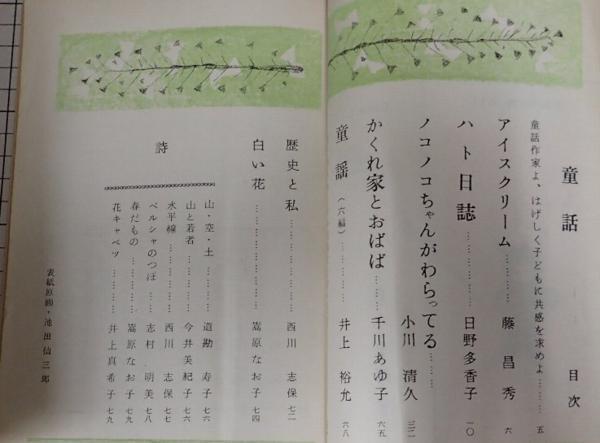 童話
目次
童話作家よ、はげしく子どもに共感を求めよ………五
アイスクリーム…………藤昌秀 六
ハト日誌…………日野多香子 一〇
ノコノコちゃんがわらってる………
小川清久 三二
かくれ家とおばば……千川あゆ子 六五
童謡(六編)…………井上裕允 六八
歴史と私…………西川志保 七二
白い花…………嵩原なお子 七四
詩
山・空・土…………道勘寿子 七六
山と若者…………今井美紀子 七六
水平線…………西川志保 七七
ペルシャのつぼ……志村明美 七八
春だもの…………嵩原なお子 七九
花キャベツ…………井上真希子 七九
表紙原画・池田仙三郎